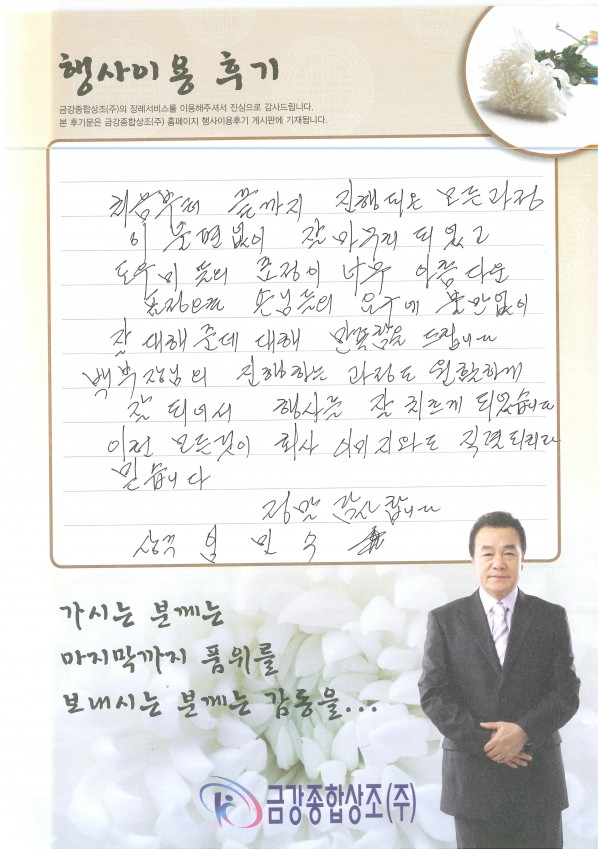 행사이용 후기
금강종합상조(주)의 장례서비스를 이용해주셔서 진심으로 감사드립니다.
본 후기문은 금강종합상조(주) 홈페이지 행사이용후기 게시판에 기재됩니다.
처음부터 끝까지 진행되온 모든과정
이 불편없이 잘 마무리 되었고
도우미 분의 표정이 너무 아름다운
표정으로 손님들의 요구에 불만없이
잘 대해 준데 대해 만족함을 드립니다
백부장님의 진행하는 과정도 원활하게
잘 되어서 행사를 잘 치르게 되었습니다
이런 모든것이 회사 이미지와도 직결되리라
믿습니다
정말 감사합니다
상주 민수
가시는 분께는
마지막까지 품위를
보내시는 분께는 감동을...
금강종합상조(주)